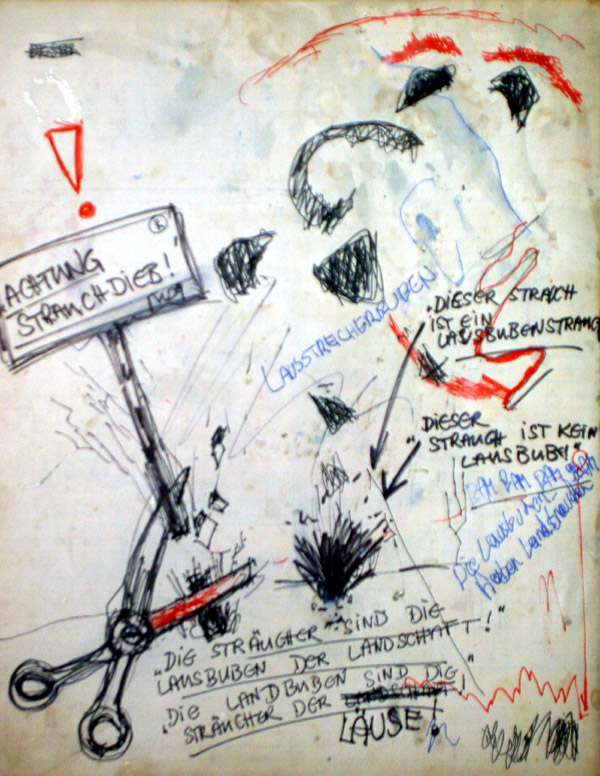 !
®
ACHTUNG
STRAUCHDIEB!
LAUSSTREICHERBUBEN
"DIESER STRAUCH
IST EIN
LAUSBUBENSTRAUCH
"DIESER
STRAUCH IST KEIN
LAUSBUB!"
Die Lausbuben
"DIE STRÄUCHER SIND DIE
LAUSBUBEN DER LANDSCHAFT!"
"DIE LANDBUBEN SIND DIE
STRÄUCHER DER LANDSCHAFT!"
LÄUSE